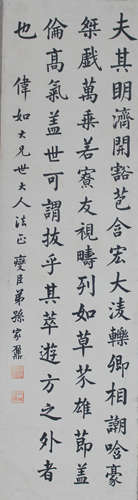 夫其明濟開豁苞含宏大凌轢卿相潮哈豪
桀戲萬乘若寮友視疇列如草芥雄節蓋
倫高氣蓋世可謂拔乎其萃遊方之外者
也 偉如大兄世大人法正 燮臣弟孫家鼐